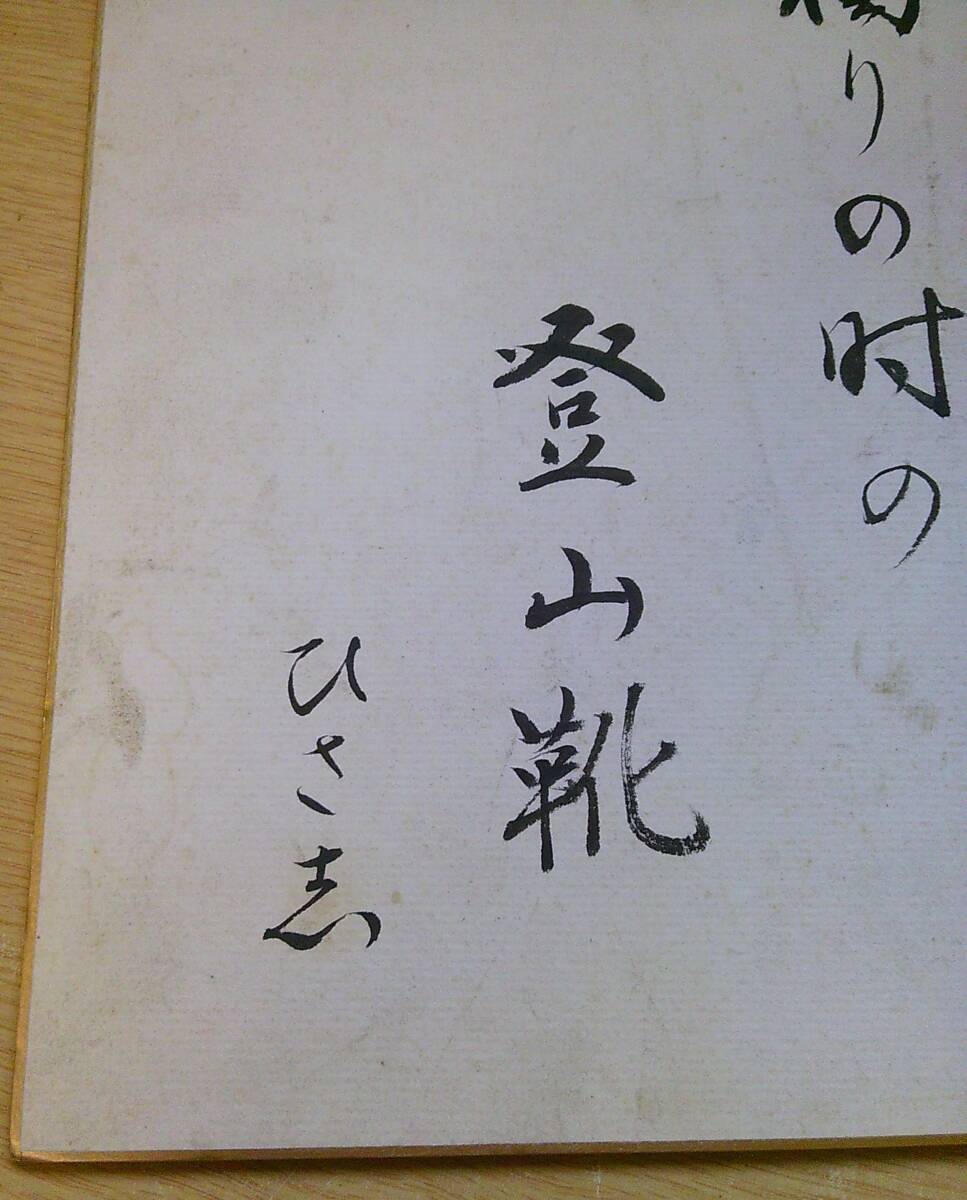 りの時の
登山靴
ひさ志